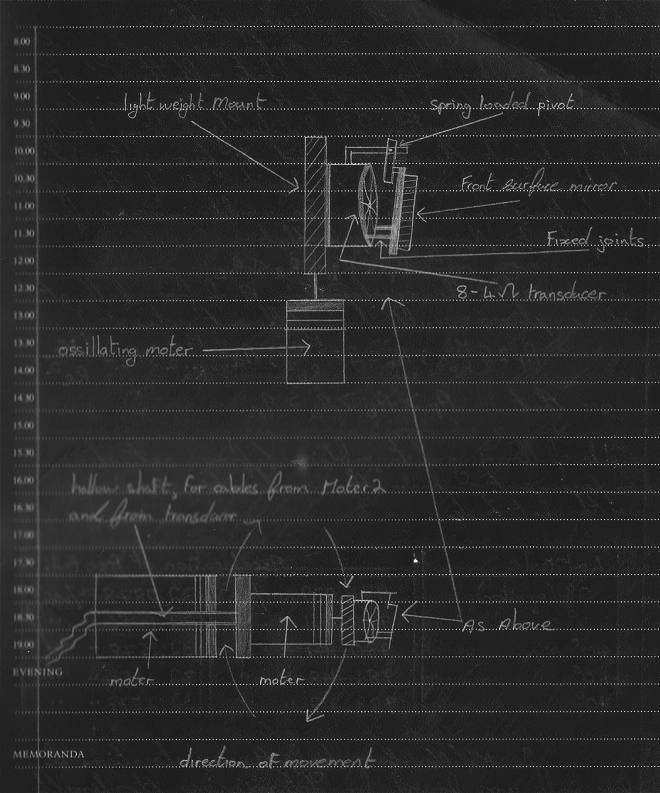 8.00
8.30
9.00
light weight mount
spring loaded pivot
9.30
10.00
10.30
Front surface mirror
11.00
11.30
Fixed joints
12.00
12.30
8-4Ω transducer
13.00
13.30
ossillating moter
14.00
14.30
15.00
15.30
16.00
hollow shaft, for cables from Moter 2
16.30
and from transducer
17.00
17.30
18.00
18.30
As Above
19.00
EVENING
moter
moter
MEMORANDA
direction of movement